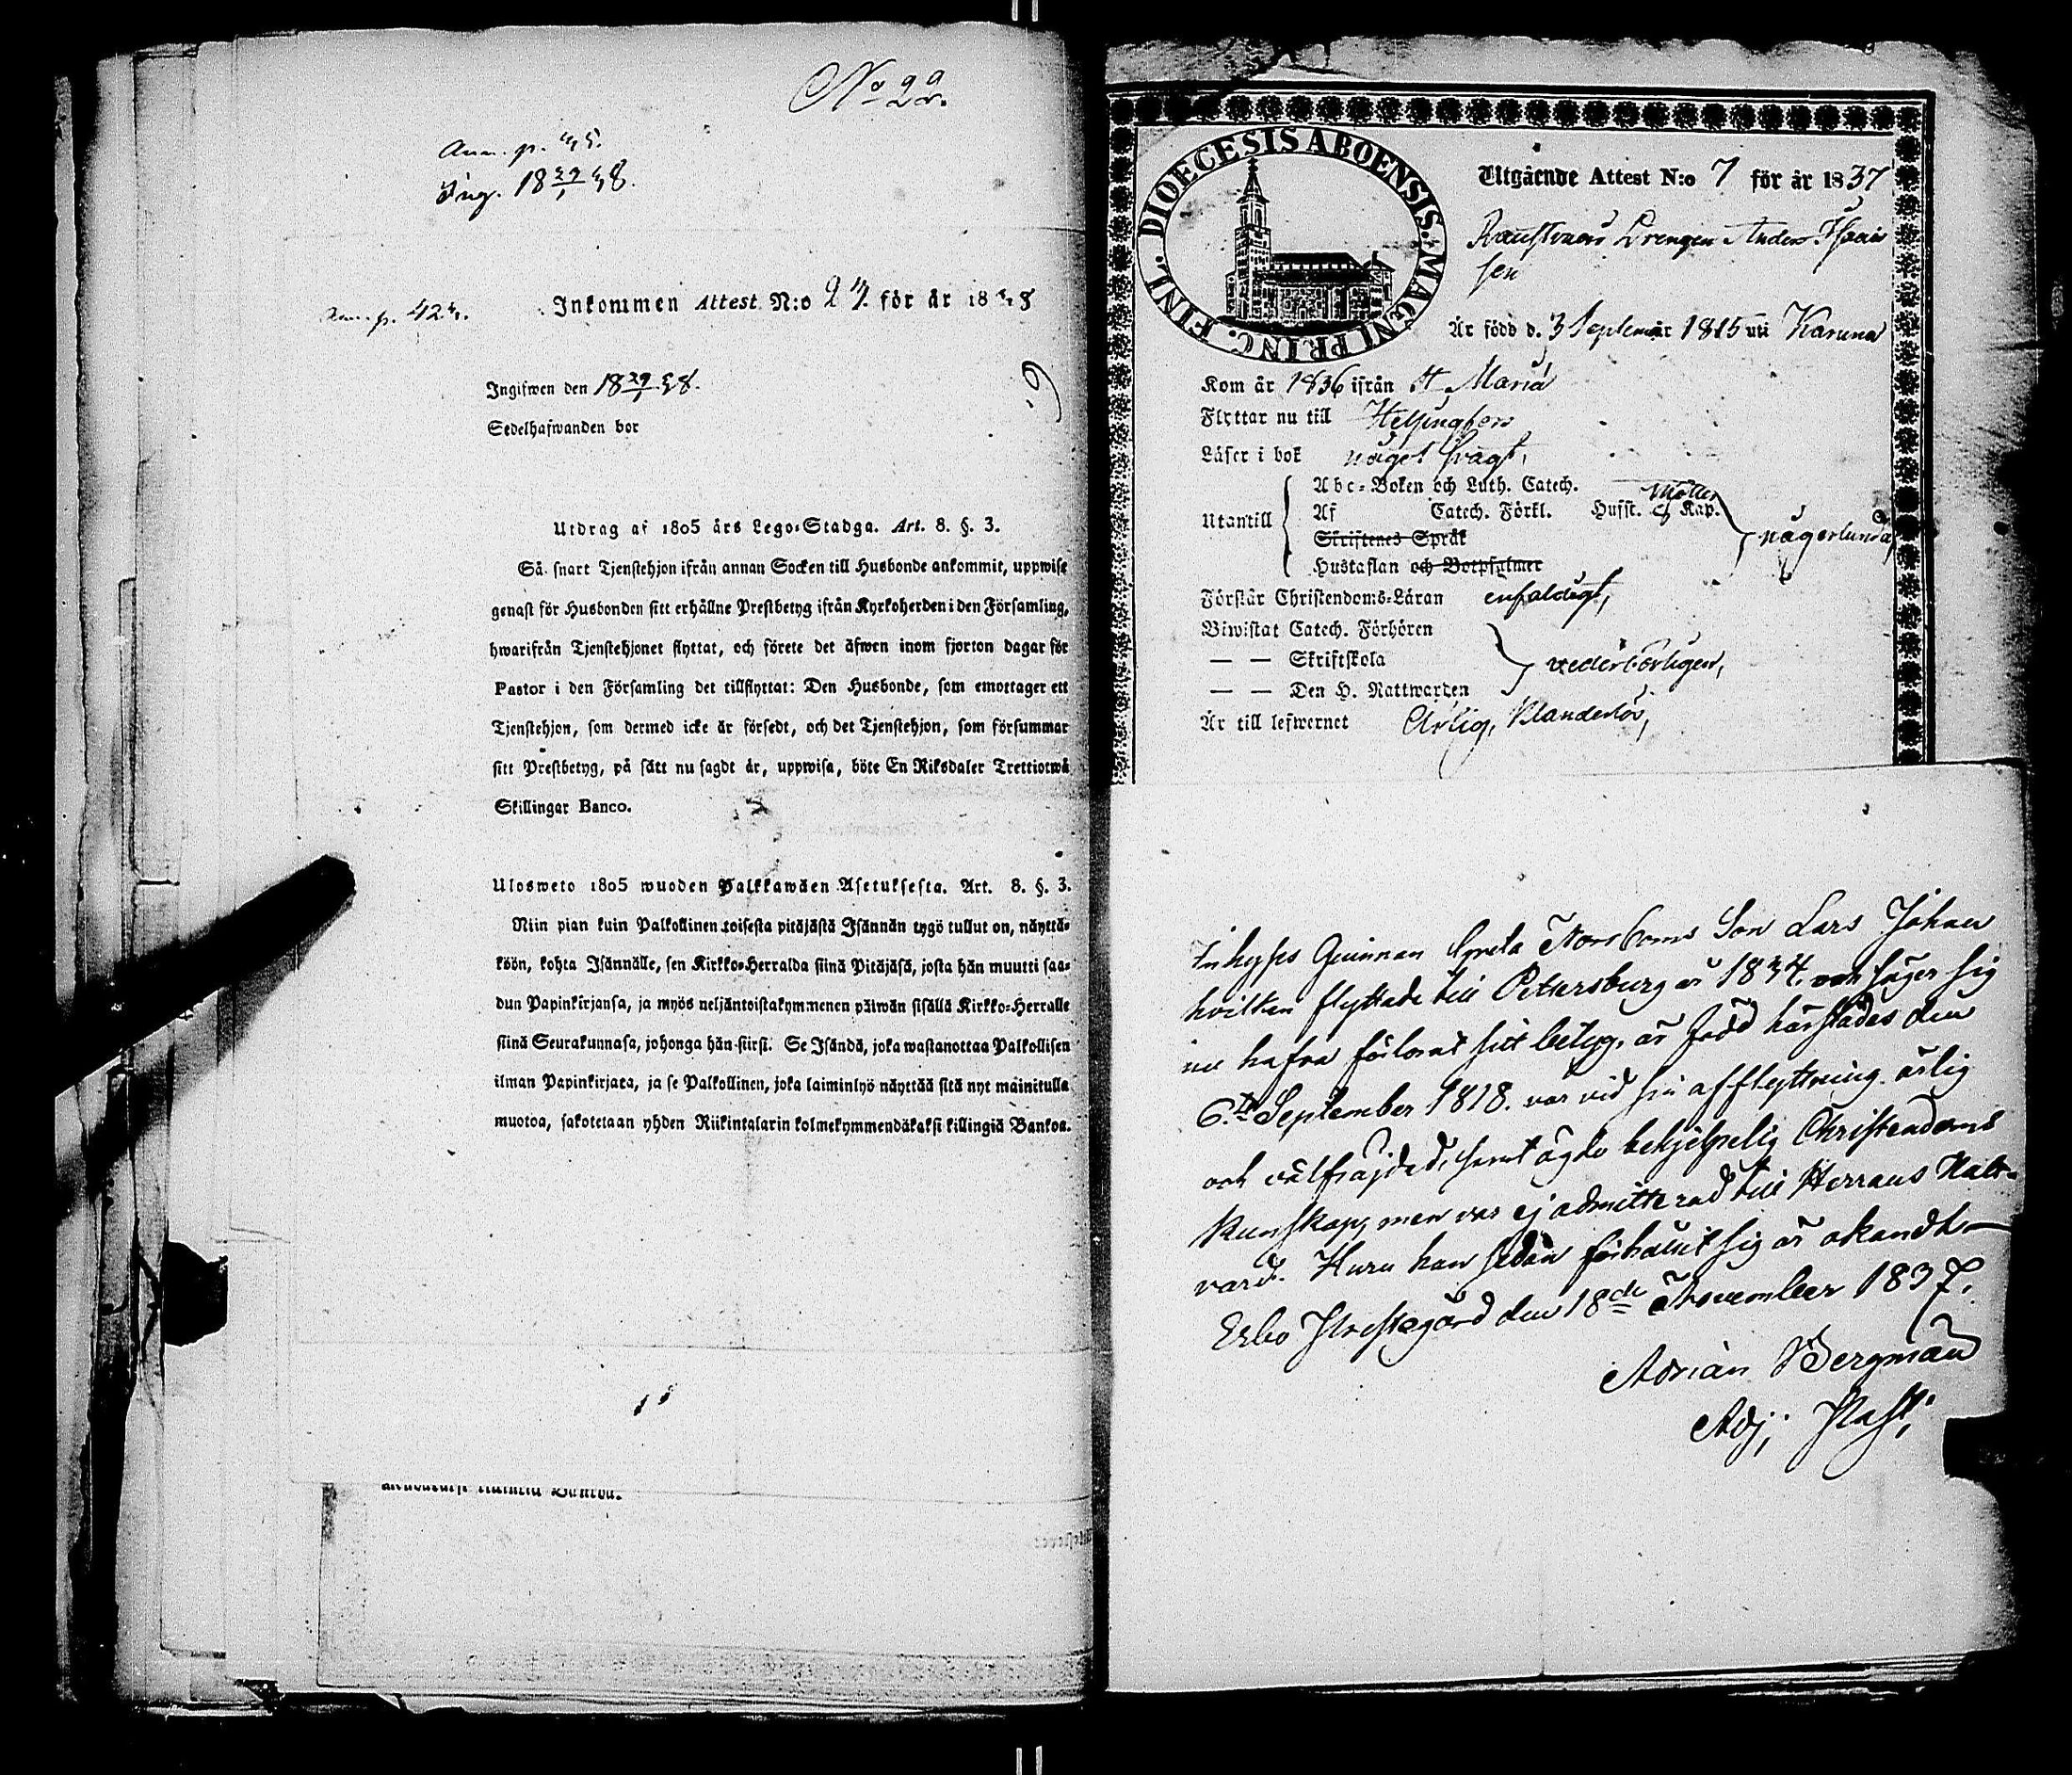 No 22.
Ann. p. 45.
Ing. 18 29/1 38.
Inkommen Attest N:o 27. för år 1838
Ann. p. 424.
Ingifwen den 18 29/1 38.
9
Sedelhafwanden bor
Utdrag af 1805 års Lego-Stadga. Art. 8. §. 3.
Så snart Tjenstehjon ifrån annan Socken till Husbonde ankommit, uppwise
genast för Husbonden sitt erhållne Prestbetyg ifrån Kyrkoherden i den Församling,
hwarifrån Tjenstehjonet flyttat, och förete det äfwen inom fjorton dagar för
Pastor i den Församling det tillflyttat: Den Husbonde, som emottager ett
Tjenstehjon, som dermed icke är försedt, och det Tjenstehjon, som försummar
sitt Prestbetyg, på sätt nu sagdt är, uppwisa, böte En Riksdaler Trettiotwå
Skillingar Banco.
Ulosweto 1805 wuoden Palkkawäen Asetuksesta. Art. 8. §. 3.
Niin pian kuin Palkollinen toisesta pitäjästä Isännän tygö tullut on, näyttä-
köön, kohta Isännälle, sen Kirkko-Herralda siinä Pitäjäsä, josta hän muutti saa-
dun Papinkirjansa, ja myös neljäntoistakymmenen päiwän sisällä Kirkko-Herralle
siinä Seurakunnasa, johonga hän siirsi. Se Isändä, joka wastanottaa Palkollisen
ilman Papinkirjata, ja se Palkollinen, joka laiminlyö näyttää sitä nyt mainitulla
muotoa, sakotetaan yhden Riikintalarin kolmekymmendäkaksi killingiä Bankoa.
DIOECESIS ABOENSIS. MAGNI PRINC. FINL.
Utgående Attest N:o 7 för år 1837
Drengen Anders Isaks
sen
Är född d. 3 September 1815 uti Karuna
Kom år 1836 ifrån St Maria
Flyttar nu till Helsingfors
Läser i bok något svagt,
Abc-Boken och Luth. Catech.
Utantill Af Möllers Catech. Förkl. Hufst. och Kap. någorlunda,
Skriftenes Språk
Hustaflan och Botpsalmer
Förstår Christendoms-Läran enfaldigt,
Biwistat Catech. Förhören
— — Skriftskola vederbörligen,
— — Den H. Nattwarden
Är till lefwernet Ärlig, klanderlös,
Inhyses Quinnan Greta Norrboms Son Lars Johan
hvilken flyttade till Petersburg år 1834. och säger sig
nu hafva förlorat sitt betyg, är född härstädes den
6te September 1818. var vid sin afflyttning ärlig
och välfräjdad, samt ägde behjelpelig Christendoms
kunskap, men var ej admitterad till Herrans Natt-
vard. Huru han sedan förhållit sig är okändt —
Esbo Prestegård den 18de November 1837.
Adrian Bergman
Adj. Past.